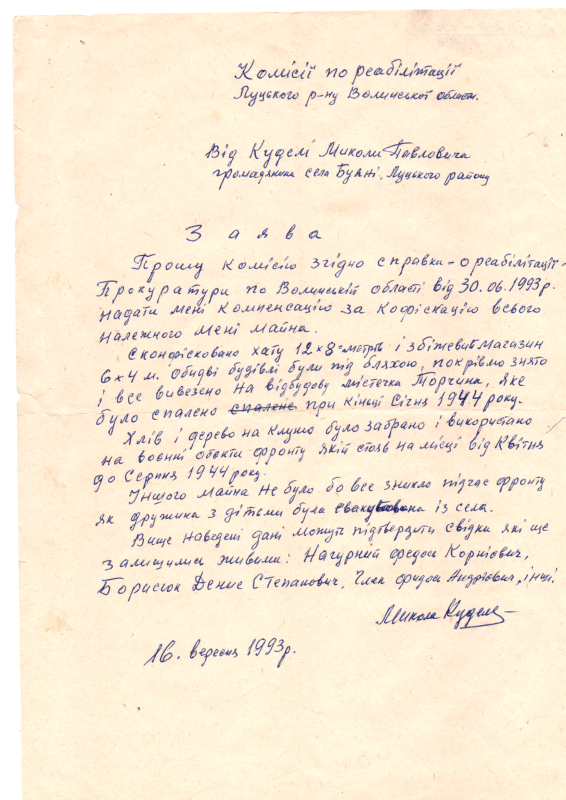 Комісії по реабілітації
Луцького р-ну Волинської області.
Від Куделі Миколи Павловича
громадянина села Буяні, Луцького району
Заява
Прошу комісію згідно справки-о реабілітації-
Прокуратури по Волинській області від 30.06.1993р.
надати мені компенсацію за кофіскацію всього
належного мені майна.
Сконфісковано хату 12х8-метрів і збіжевий магазин
6х4 м. Обидві будівлі були під бляхою, покрівлю знято
і все вивезено на відбудову містечка Торчина, яке
було спалено спалене при кінці Січня 1944 року.
Хлів і дерево на клуню було забрано і використано
на воєнні обєкти фронту якій стояв на місці від Квітня
до Серпня 1944 року.
Іншого майна не було бо все зникло підчас фронту
як дружина з дітьми була евакуйована із села.
Вище наведені дані можуть підтвердити свідки які ще
залишились живими: Нагурний Федось Корнієвич,
Борисюк Денис Степанович, Федось Андрієвич, інші.
Микола Куделя
16. вересня 1993р.